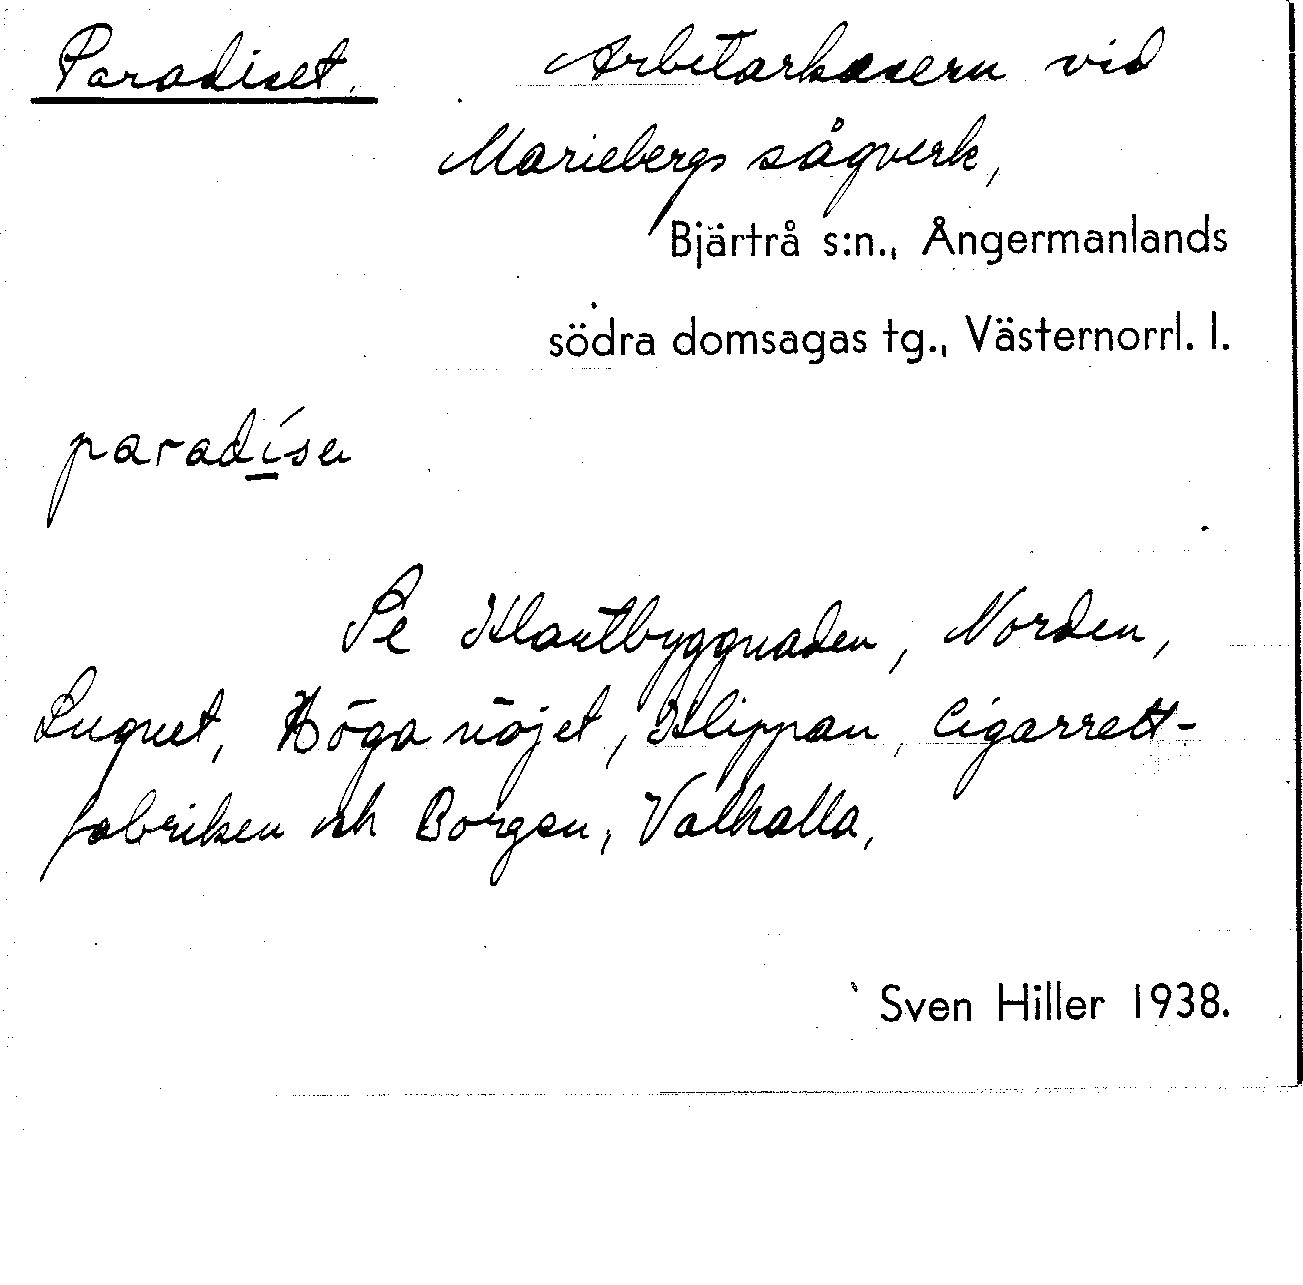 Paradiset. Arbetarkasern vid
Mariebergs sågverk,
Bjärtrå s:n., Ångermanlands
södra domsagas tg., Västernorrl. l.
paradísa
Se Klantbyggnaden, Norden,
Lugnet, Höga nöjet, Klippan, Cigarrett-
fabriken och Borgen, Valhalla,
Sven Hiller 1938.